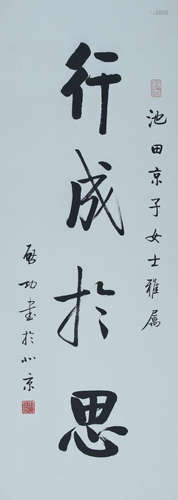 池田京子女士雅属
行成於思
启功書於北京